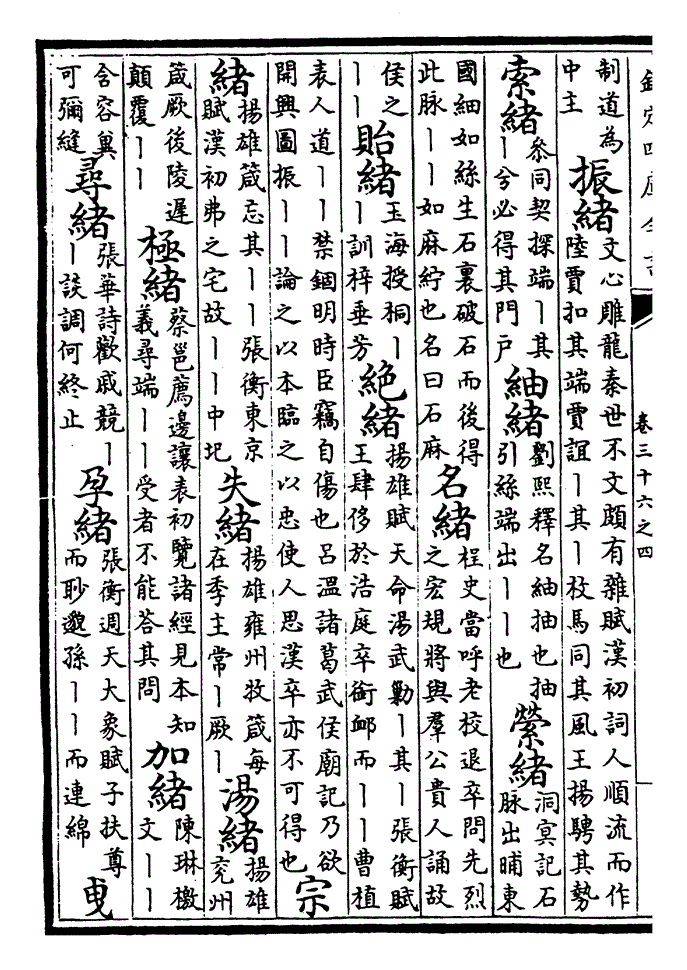 欽定四庫全書
卷三十六之四
制道為
中主
振緒
文心雕龍秦世不文頗有雜賦漢初詞人順流而作
陸賈扣其端賈誼丨其丨枚馬同其風王揚騁其勢
索緒
叅同契探端丨其
丨兮必得其門戶
紬緒
劉熙釋名紬抽也抽
引絲端出丨丨也
縈緒
洞冥記石
脉出晡東
國細如絲生石裏破石而後得
此脉丨丨如麻紵也名曰石麻
名緒
桯史當呼老校退卒問先烈
之宏規將與羣公貴人誦故
侯之
丨丨
貽緒
玉海授桐丨
丨訓梓垂芳
絶緒
揚雄賦天命湯武勦丨其丨張衡賦
王肆侈於浩庭卒銜卹而丨丨曹植
表人道丨丨禁錮明時臣竊自傷也呂溫諸葛武侯廟記乃欲
開興圖振丨丨論之以本臨之以忠使人思漢卒亦不可得也
宗
緒
揚雄箴忘其丨丨張衡東京
賦漢初弗之宅故丨丨中圮
失緒
揚雄雍州牧箴每
在季主常丨厥丨
湯緒
揚雄
兖州
箴厥後陵遲
顛覆丨丨
極緒
蔡邕薦邊讓表初覽諸經見本知
義尋端丨丨受者不能荅其問
加緒
陳琳檄
文丨丨
含容冀
可彌縫
尋緒
張華詩歡戚競丨
丨談調何終止
孕緒
張衡週天大象賦子扶尊
而耿邈孫丨丨而連綿
曳